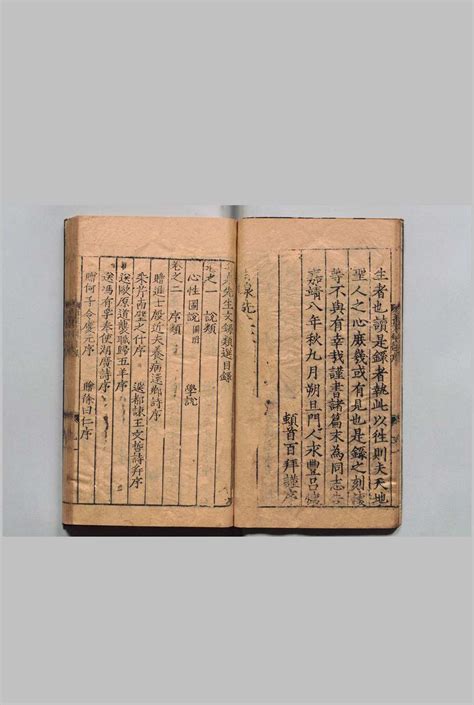 生者也讀是錄者執此以往則夫天地
聖人之心庶幾或有見也是錄之刻
等不與有幸哉謹書諸篇末為同志告
嘉靖八年秋九月朔旦門人永豐呂懷
頓首百拜謹序
先生文錄類選目錄
卷之一 說類
心性圖說 學說
卷之二 序類
贈進士殷近夫養病還鄉詩序
朱 南 之什序 送都諫王文哲詩序
送歐原道襲職歸五羊序
送馮有孚奉使湖廣詩序
贈何子 慶元序 贈徐曰仁序